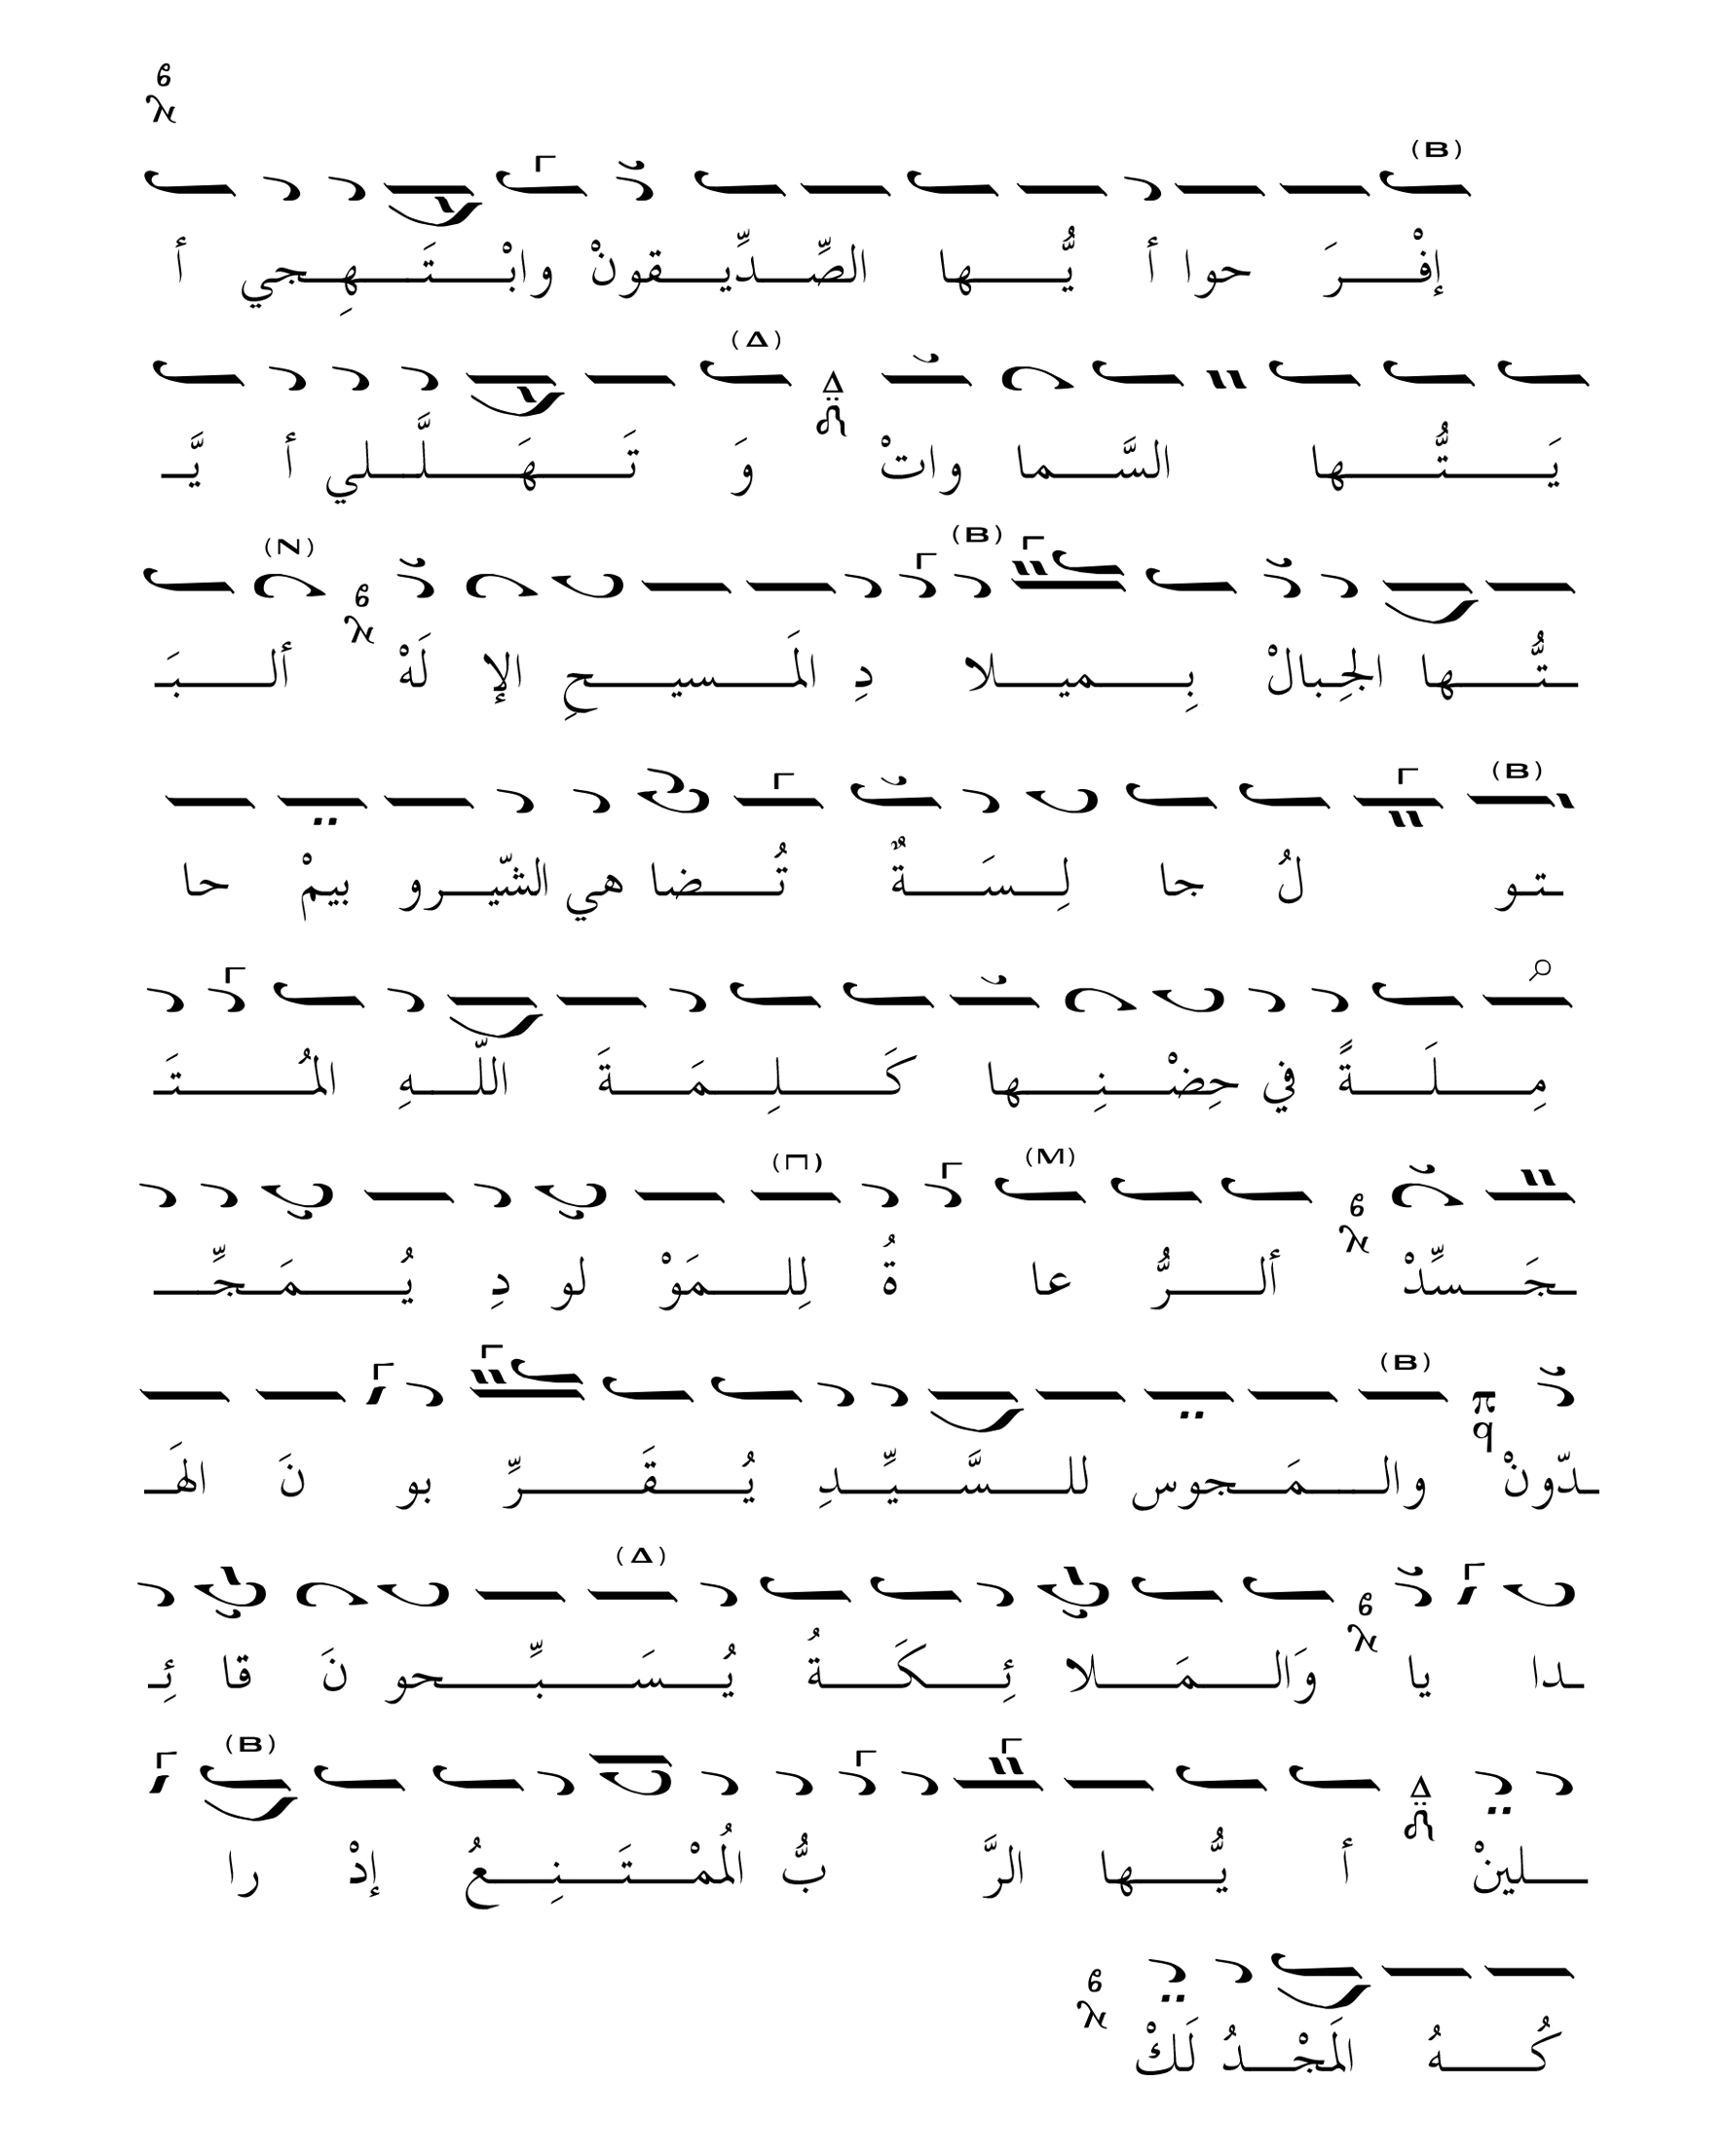 إفْـــرَ حوا أ يُّـــها الصِّـــدِّيـــقونْ وابْـــتَـــهِـــجي أ
يَـــتُّـــها السَّـــما واتْ وَ تَـــهَـــلَّـــلي أ يَّـ
ـتُّـــها الجِبالْ بِـــميـــلا دِ المَـــسيـــحِ الإ لَهْ ألـــبَـ
ـتو لُ جا لِـــسَـــةٌ تُـــضا هي الشّيـــرو بيمْ حا
مِـــلَـــةً في حِضْـــنِـــها كَـــلِـــمَـــةَ اللّـــهِ المُـــتَـ
ـجَـــسِّدْ ألـــرُّ عا ةُ لِلـــمَوْ لو دِ يُـــمَـــجِّـ
ـدّونْ والـــمَـــجوس للـــسَّـــيِّـــدِ يُـــقَـــرِّ بو نَ الهَـ
ـدا يا وَالـــمَـــلا ئِـــكَـــةُ يُـــسَـــبِّـــحو نَ قا ئِـ
ـلينْ أ يُّـــها الرَّ بُّ المُمْـــتَـــنِـــعُ إدْ را
كُـــهُ المَجْـــدُ لَكْ